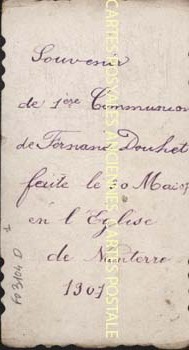 Souvenir
de 1ère Communion
de Fernand Douhet
faite le 30 Mai
en l'Eglise
de Nanterre
1907
CARTES POSTALES ANCIENNES CARTES POSTALE